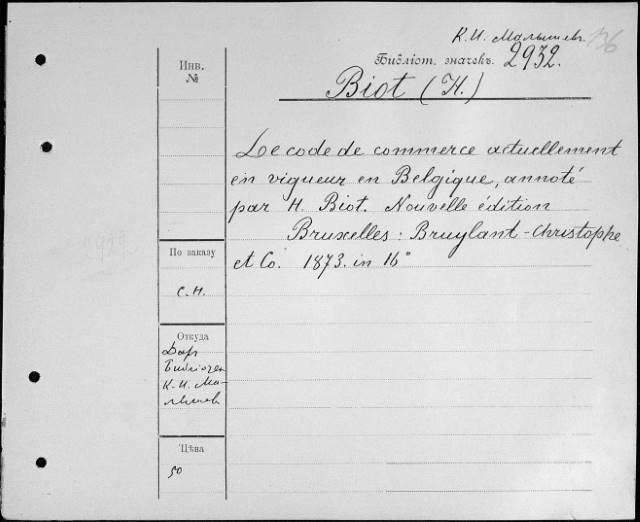 К.И. Малышев. 136
Библіот. значекъ. 2932.
Biot (H.)
Инв.
№
Le code de commerce actuellement
en vigueur en Belgique, annoté
par H. Biot. Nouvelle édition
Bruxelles: Bruylant-Christophe
et Co. 1873. in 16°
По заказу
С.Н.
Откуда
Дар
Библіотек
К.И. Ма-
лышев
Цѣна
50